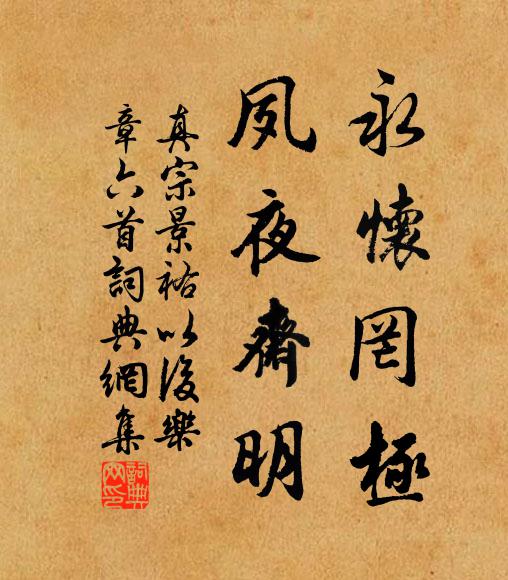 永懷罔極
夙夜齋明
真宗景祐以後樂
章六首詞典網集
詞典网印